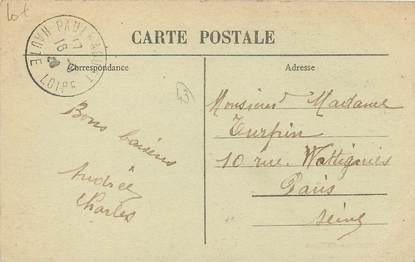 Lot
CARTE POSTALE
Correspondance
Adresse
HAUTE LOIRE
17
16
Bons baisers
Andrée
Charles
Monsieur Madame
Turpin
10 rue Wattignies
Paris
Seine